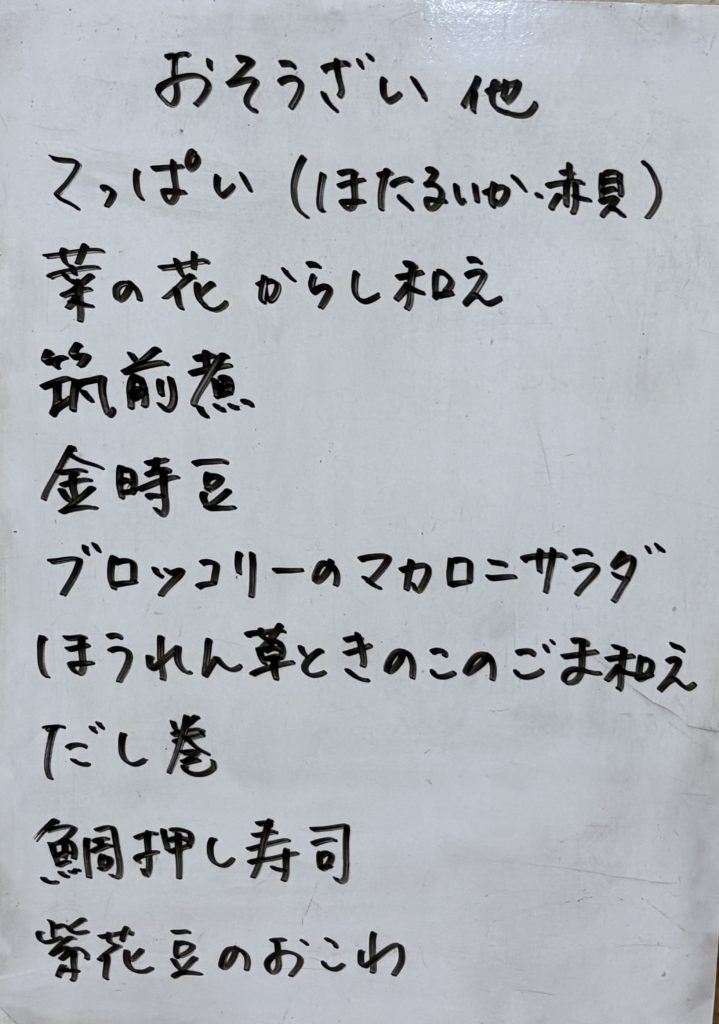 おそうざい 他
てっぱい (ほたるいか・赤貝)
菜の花 からし和え
筑前煮
金時豆
ブロッコリーのマカロニサラダ
ほうれん草ときのこのごま和え
だし巻
鯛押し寿司
紫花豆のおこわ